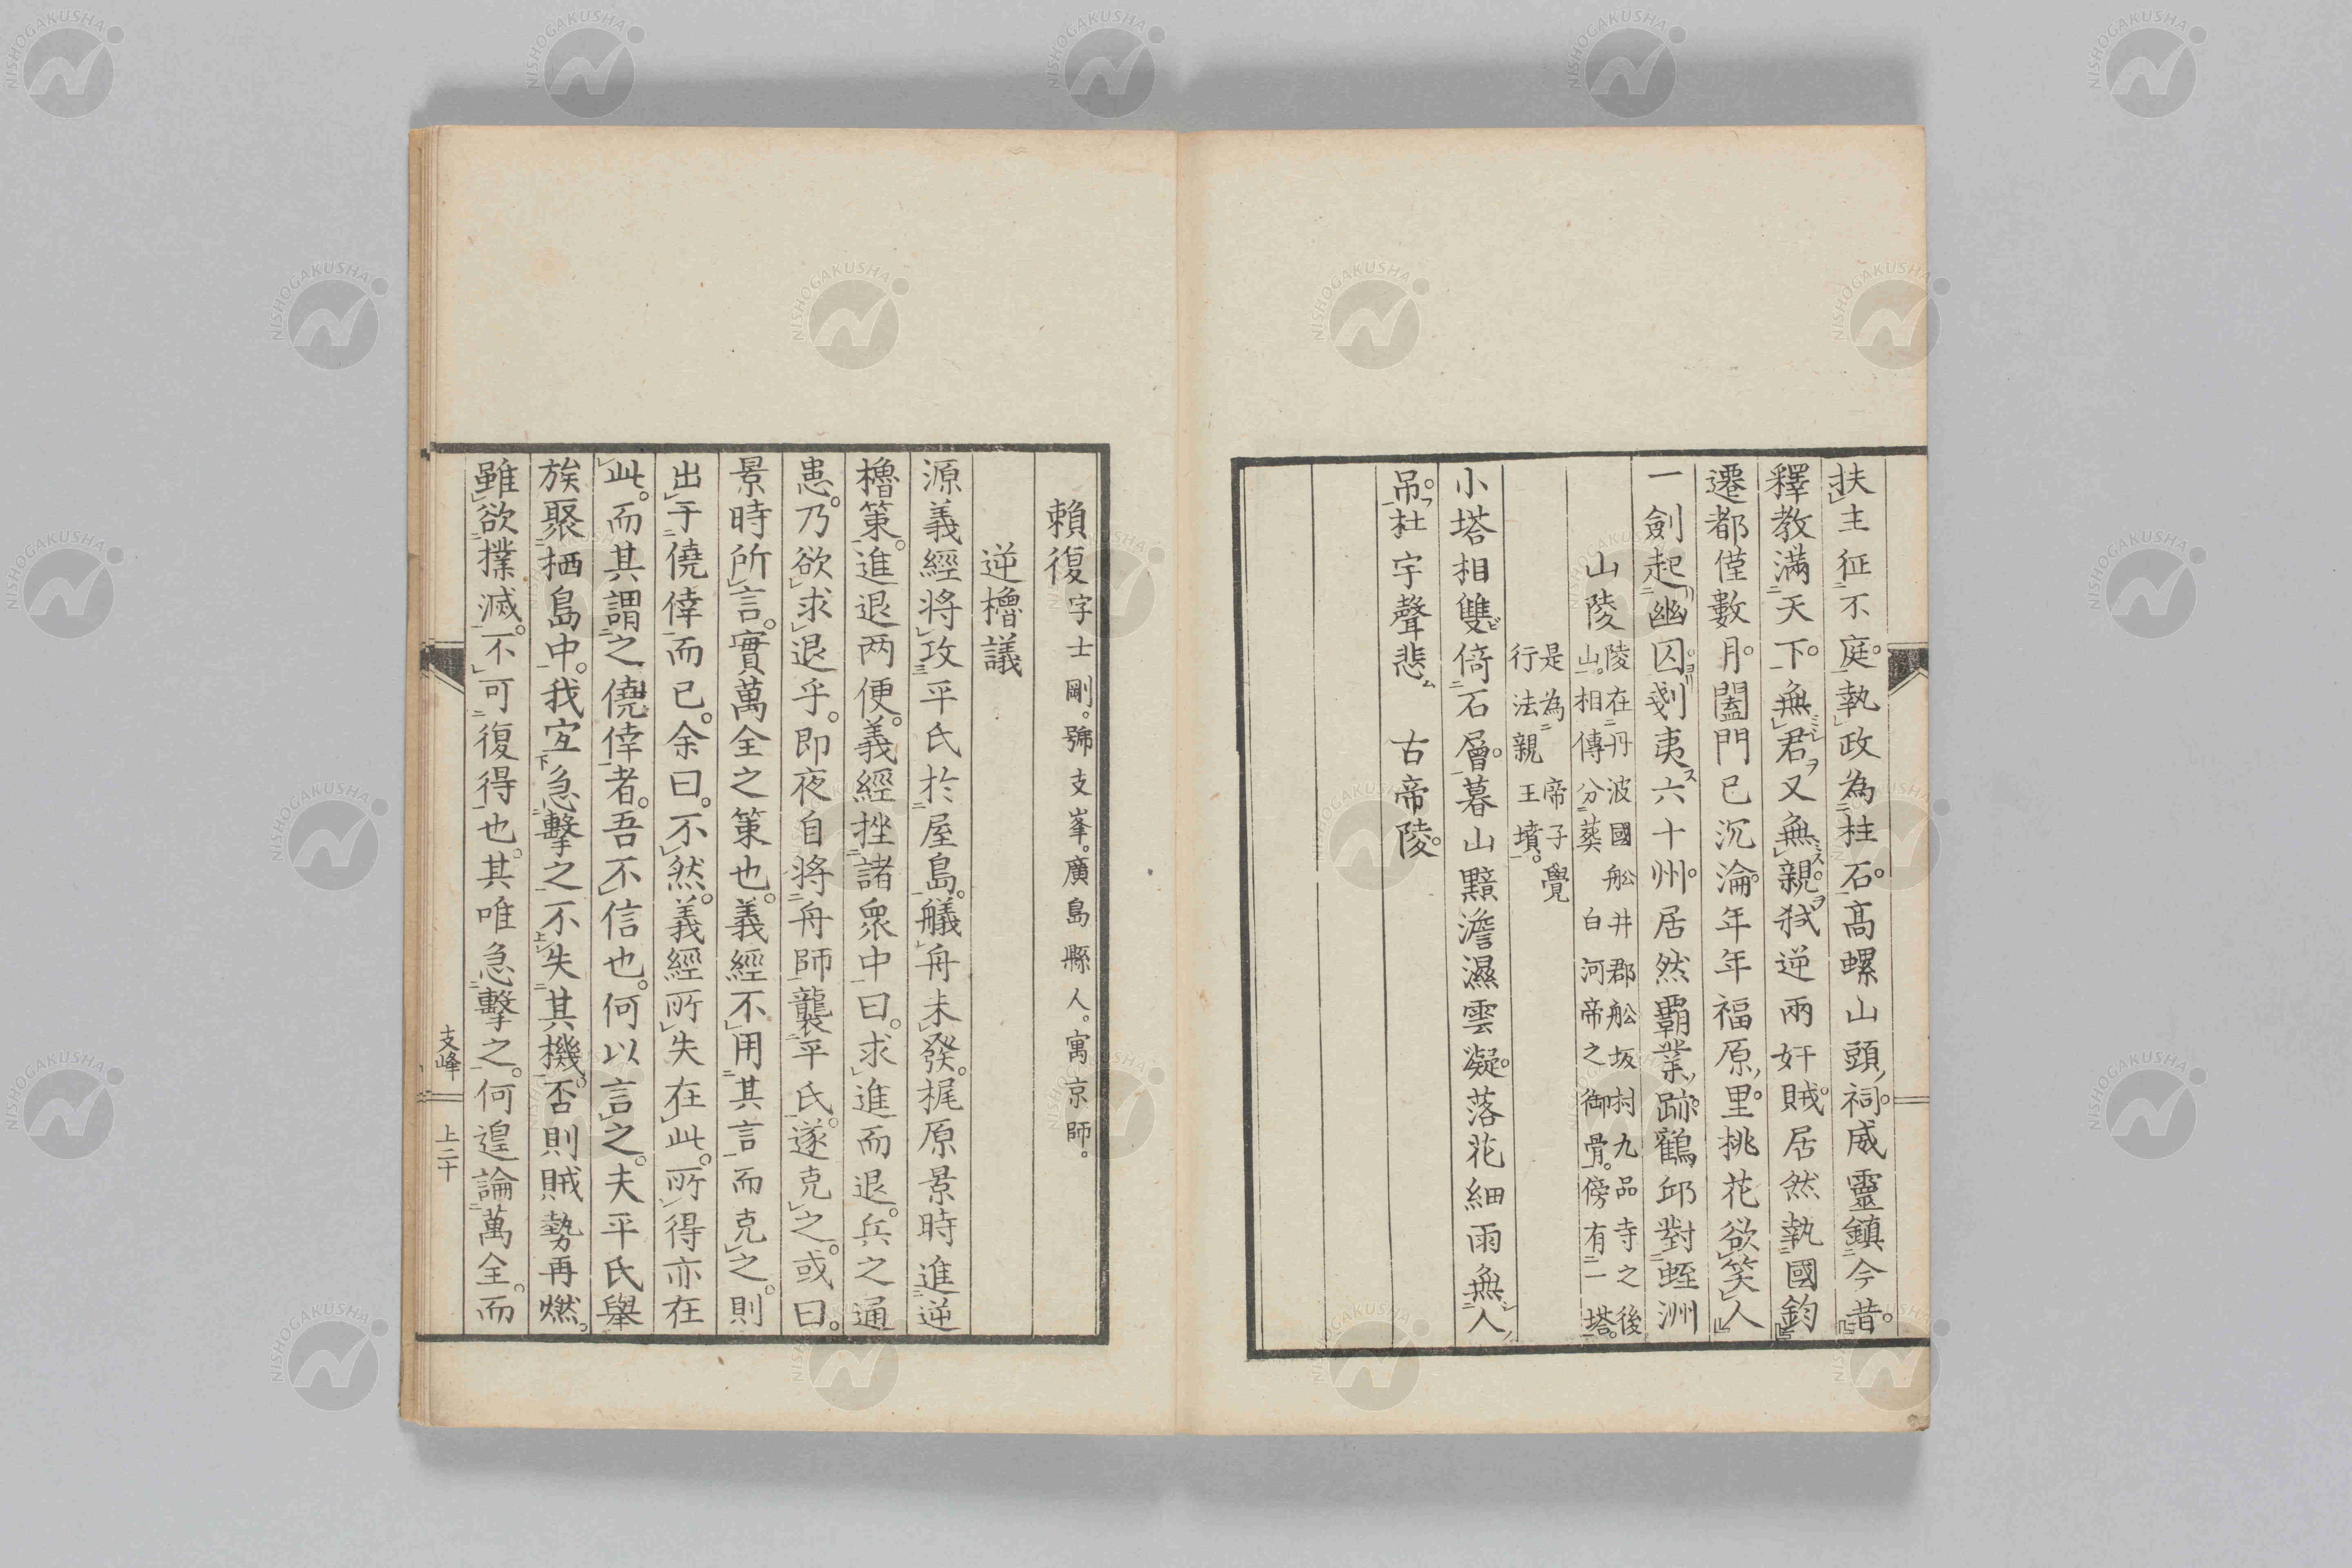 扶主征不庭。執政為柱石。高螺山頭祠。威靈鎮今昔。
釋教滿天下。無君又無親。弑逆兩奸賊。居然執國鈞
遷都僅數月。闔門已沉淪。年年福原里。桃花欲笑人
一劍起幽囚。剗夷六十州。居然覇業跡。鶴邱對蛭洲
山陵
陵在丹波國舩井郡舩坂村九品寺之後
山。相傳分葬白河帝之御骨。傍有一塔。
是為帝子覺
行法親王墳。
小塔相雙倚石層。暮山黯澹濕雲凝。落花細雨無人
吊。杜宇聲悲古帝陵。
賴復字士剛。號支峯。廣島縣人。寓京師。
逆櫓議
源義經將攻平氏於屋島。艤舟未發。梶原景時進逆
櫓策。進退两便。義經挫諸衆中曰。求進而退。兵之通
患。乃欲求退乎。即夜自将舟師襲平氏。遂克之。或曰。
景時所言。實萬全之策也。義經不用其言而克之。則
出于僥倖而已。余曰。不然。義經所失在此。所得亦在
此。而其謂之僥倖者。吾不信也。何以言之。夫平氏舉
族聚栖島中。我宜急擊之不失其機。否則賊勢再燃。
雖欲撲滅。不可復得也。其唯急擊之。何遑論萬全。而
支峰
上二十
NISHOGAKUSHA